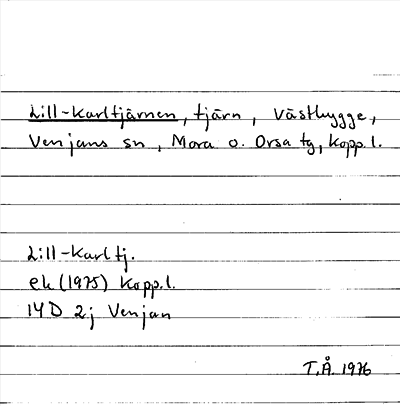 Lill-Karltjärnen, tjärn, Västbygge,
Venjans sn, Mora o. Orsa tg, Kopp. l.
Lill-Karl tj.
ek (1975) Kopp. l.
14D 2j Venjan
T.Å. 1976